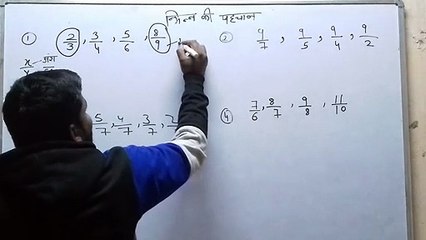 भिन्न की पहचान
① 2/3, 3/4, 5/6, 8/9,
② 9/7, 9/5, 9/4, 9/2
x/y अंश
5/7, 4/7, 3/7, 2/7
④ 7/6, 8/7, 9/8, 11/10